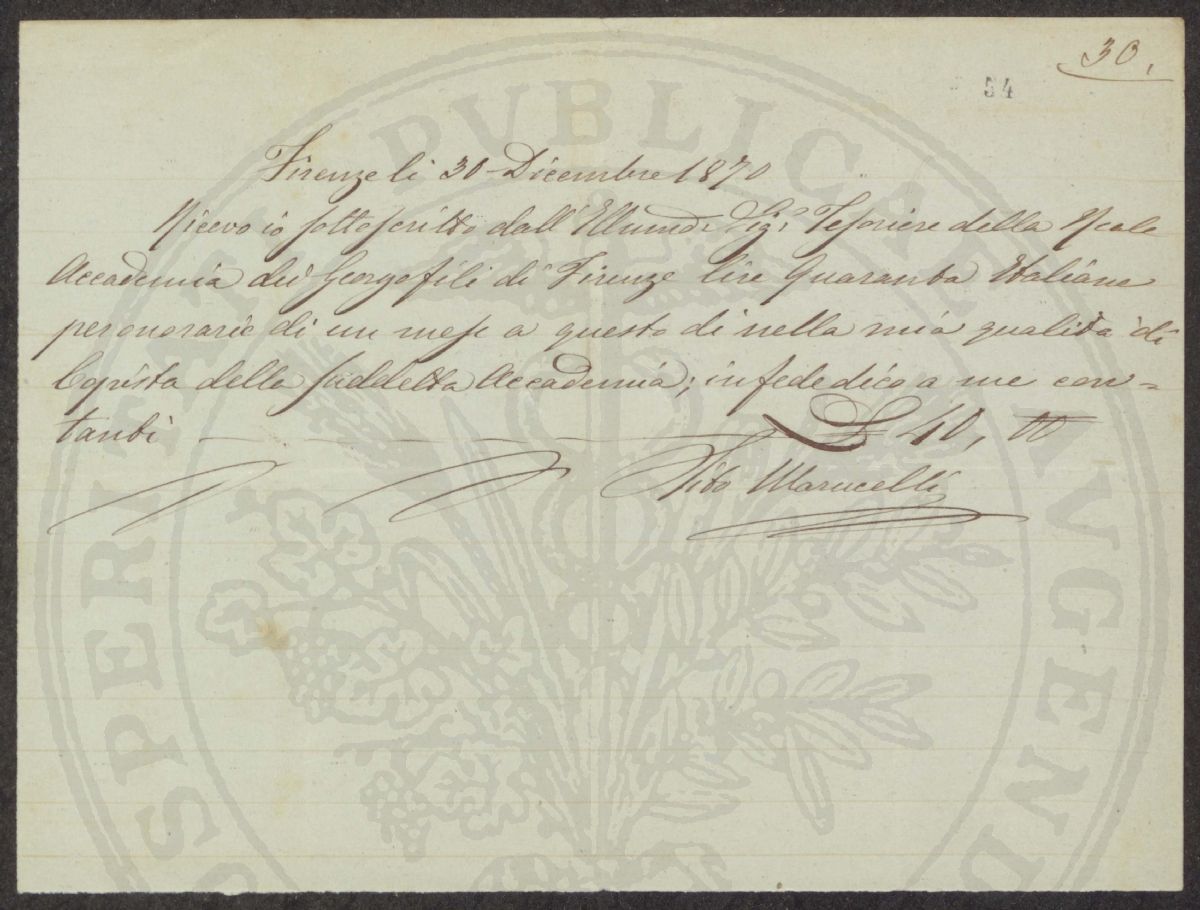 30,
54
Firenze li 30 Dicembre 1870
Ricevo io sottoscritto dall' Illumo: Sigr Tesoriere della Reale
Accademia dei Georgofili di Firenze lire Quaranta Italiane
per onorario di un mese a questo di nella mia qualità di
Copista della suddetta Accademia; in fede dico a me con=
tanti £ 40, 00
Tito Marucelli
PROSPERITATI PUBLICAE AUGENDAE